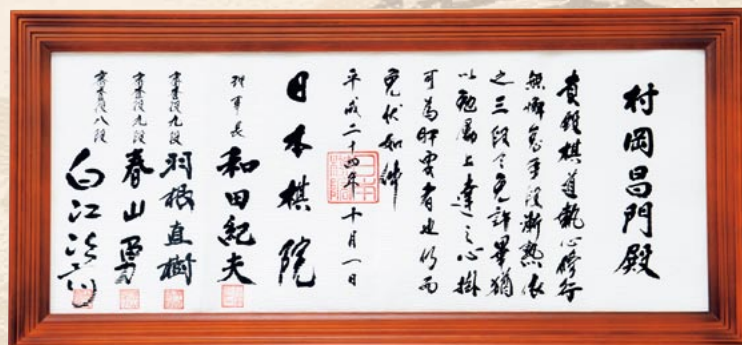 村岡昌門殿
貴殿棋道執心修行
無懈怠手段漸熟依
之三段令免許畢猶
以勉励上達之心掛
可為肝要者也仍而
免状如件
平成二十四年十月一日
日本棋院
理事長 和田紀夫
審査役九段 羽根直樹
審査役九段 春山勇
審査役八段